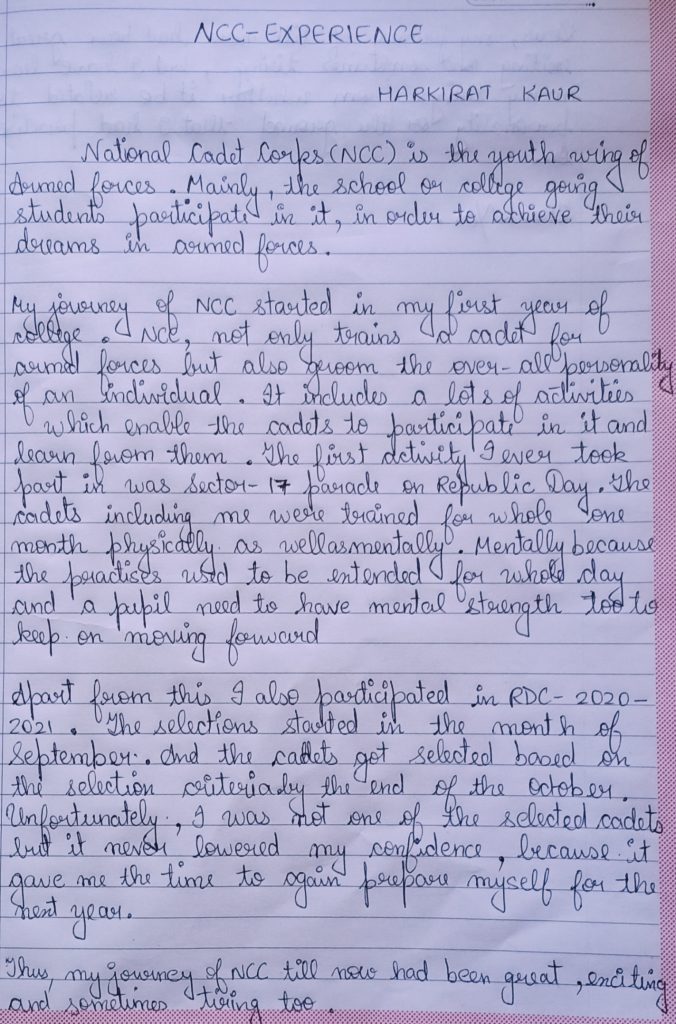 NCC-EXPERIENCE
HARKIRAT KAUR
National Cadet Corps (NCC) is the youth wing of
Armed forces. Mainly, the school or college going
students participate in it, in order to achieve their
dreams in armed forces.
My journey of NCC started in my first year of
college. NCC, not only trains a cadet for
armed forces but also groom the over-all personality
of an individual. It includes a lots of activities
which enable the cadets to participate in it and
learn from them. The first activity I ever took
part in was Sector-17 parade on Republic Day. The
cadets including me were trained for whole one
month physically as wellasmentally. Mentally because
the practises used to be extended for whole day
and a pupil need to have mental strength too to
keep on moving forward
Apart from this I also participated in RDC-2020-
2021. The selections started in the month of
September. And the cadets got selected based on
the selection criteria by the end of the October.
Unfortunately, I was not one of the selected cadets
but it never lowered my confidence, because it
gave me the time to again prepare myself for the
next year.
Thus, my journey of NCC till now had been great, exciting
and sometimes tiring too.